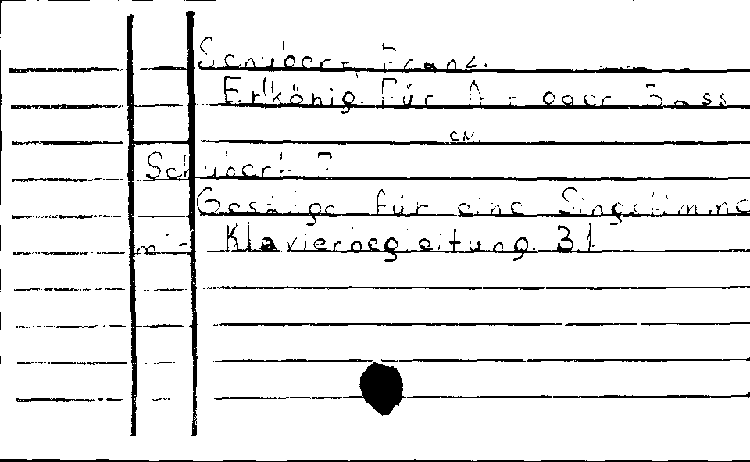 Schubert, Franz.
Erlkönig. Für Alt oder Bass
Schubert
Gesänge für eine Singstimme
mit Klavierbegleitung.